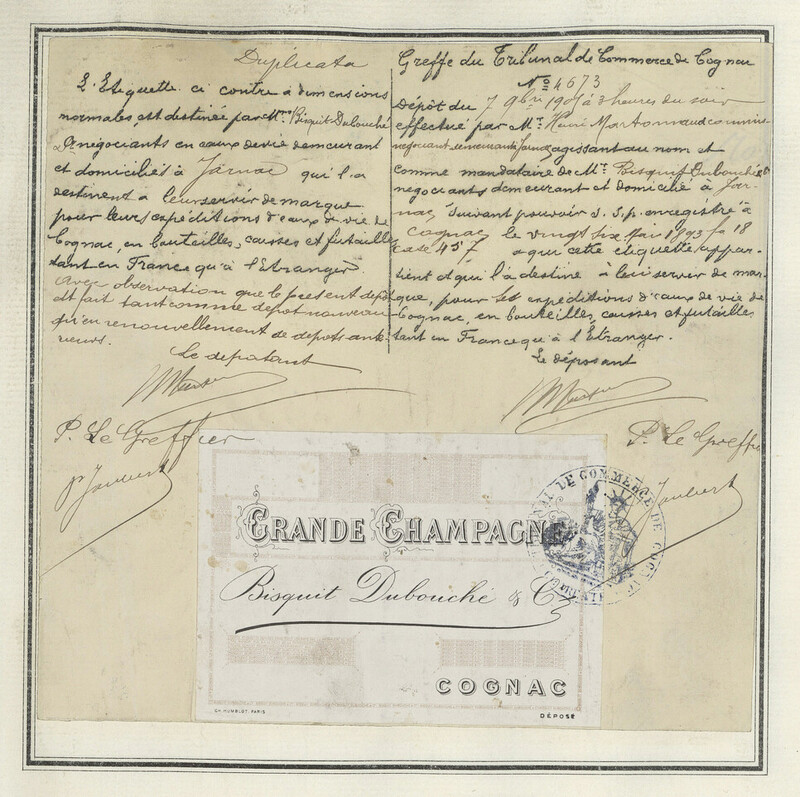 Duplicata
L'Etiquette ci contre a dimensions
normales, est destinée par Mrs Bisquit Dubouché
& négociants en eaux de vie demeurant
et domiciliés à Jarnac qui l'a
destinent a leur servir de marque
pour leurs expéditions d'eaux de vie de
Cognac, en bouteilles, caisses et futailles
tant en France qu'à l'Etranger
avec observation que le présent dépôt
est fait tant comme depot nouveau
qu'en renouvellement de depots anté-
rieurs.
Le déposant
P. Le Greffier
Joubert
Greffe du Tribunal de Commerce de Cognac
No 4673
Dépôt du 7 9bre 190 à 3 heures du soir
effectué par Mr Henri Martonnaud commis
négociant demeurant à Jarnac agissant au nom et
comme mandataire de Mrs Bisquit Dubouché &
négociants demeurant et domicilié à Jar-
nac, suivant pouvoir s.s.p. enregistré à
Cognac le vingt six Mai 1893 fo 18
case 457 a qui cette étiquette appar-
tient et qui l'a destine à leur server de mar-
que, pour les expéditions d'eaux de vie de
Cognac, en bouteilles, caisses et futailles
tant en France qu'à l'Etranger.
Le déposant
P. Le Greffier
Joubert
TRIBUNAL DE COMMERCE DE COGNAC
GRANDE CHAMPAGNE
Bisquit Dubouché & Co
COGNAC
CH. HUMBLOT, PARIS
DÉPOSÉ